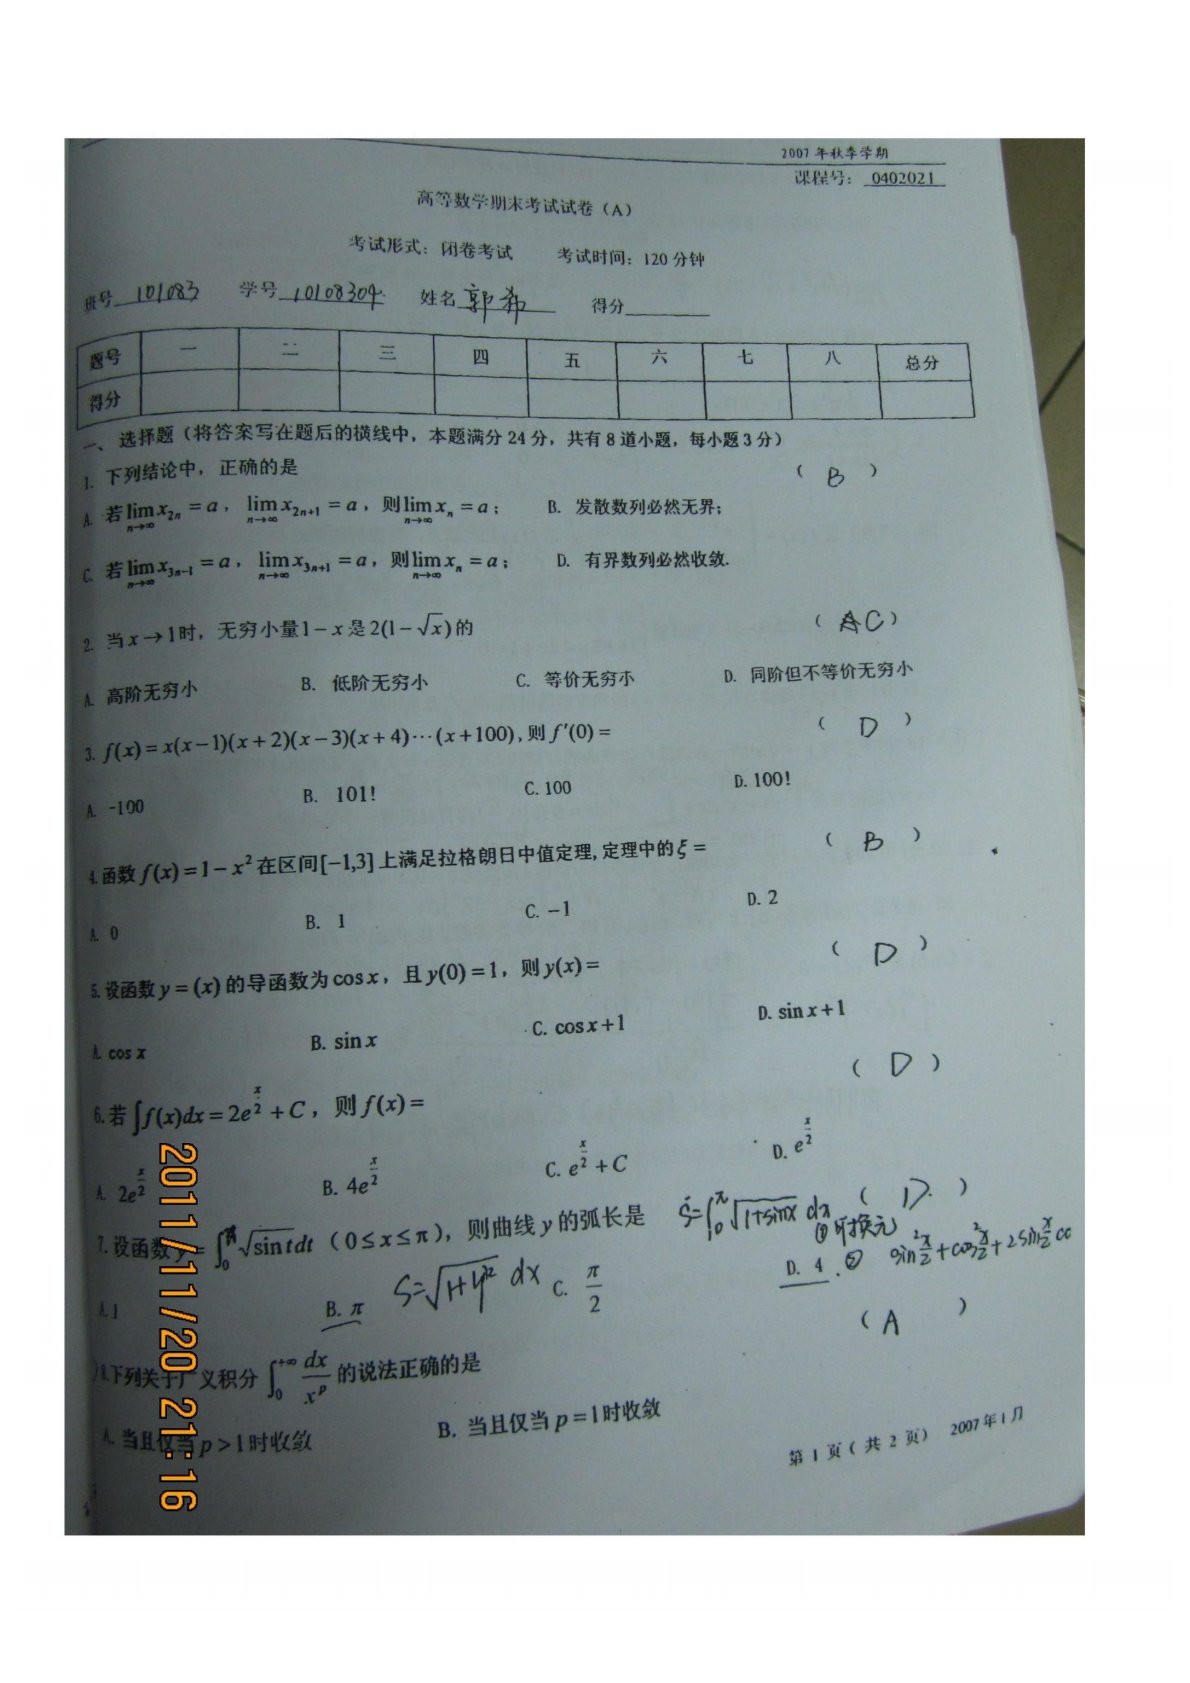 2007 年秋季学期
课程号： 0402021
高等数学期末考试试卷（A）
考试形式：闭卷考试 考试时间：120 分钟
班号 101083 学号 10108304 姓名 郭希 得分
题号 一 二 三 四 五 六 七 八 总分
得分
一、选择题（将答案写在题后的横线中，本题满分 24 分，共有 8 道小题，每小题 3 分）
1. 下列结论中，正确的是 （ B ）
A. 若 lim x_{2n} = a， lim x_{2n+1} = a，则 lim x_n = a； B. 发散数列必然无界；
n→∞ n→∞ n→∞
C. 若 lim x_{3n-1} = a， lim x_{3n+1} = a，则 lim x_n = a； D. 有界数列必然收敛.
n→∞ n→∞ n→∞
2. 当 x→1时，无穷小量1−x是2(1−√x)的 （ C ）
A. 高阶无穷小 B. 低阶无穷小 C. 等价无穷小 D. 同阶但不等价无穷小
3. f(x) = x(x−1)(x+2)(x−3)(x+4)⋯(x+100), 则 f′(0) = （ D ）
A. -100 B. 101! C. 100 D. 100!
4. 函数 f(x) = 1−x² 在区间[−1,3]上满足拉格朗日中值定理, 定理中的 ξ = （ B ）
A. 0 B. 1 C. −1 D. 2
5. 设函数 y = (x) 的导函数为 cos x，且 y(0) = 1，则 y(x) = （ D ）
A. cos x B. sin x C. cos x+1 D. sin x+1
6. 若 ∫f(x)dx = 2e^{x/2} + C，则 f(x) = （ D ）
A. 2e^{x/2} B. 4e^{x/2} C. e^{x/2} + C D. e^{x/2}
7. 设函数 y = ∫₀ √sin t dt（0≤x≤π），则曲线 y 的弧长是 S=∫₀^π √1+sinx dx （ D ）
① 可换元
A. 1 B. π S=√1+y'² dx C. π/2 D. 4 ② sin²x/2+cos²x/2+2sin x/2 co
8. 下列关于广义积分 ∫₀^{+∞} dx/x^p 的说法正确的是 （ A ）
A. 当且仅当 p>1时收敛 B. 当且仅当 p=1时收敛
第 1 页（共 2 页） 2007 年 1 月
2011/11/20 21:16